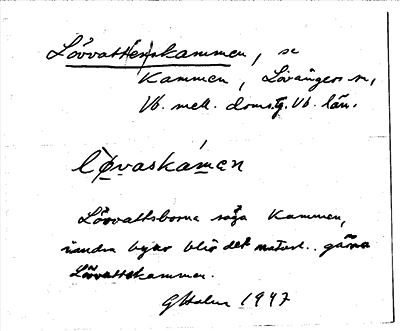 Lövvatt(en)skammen, se
Kammen, Lövångers sn,
Vb. mell. doms. Vb. län.
løvaskámen
Lövvattsborna säga Kammen,
i andra byar blir det naturl.. gärna
Lövvattskammen.
G Holm 1947